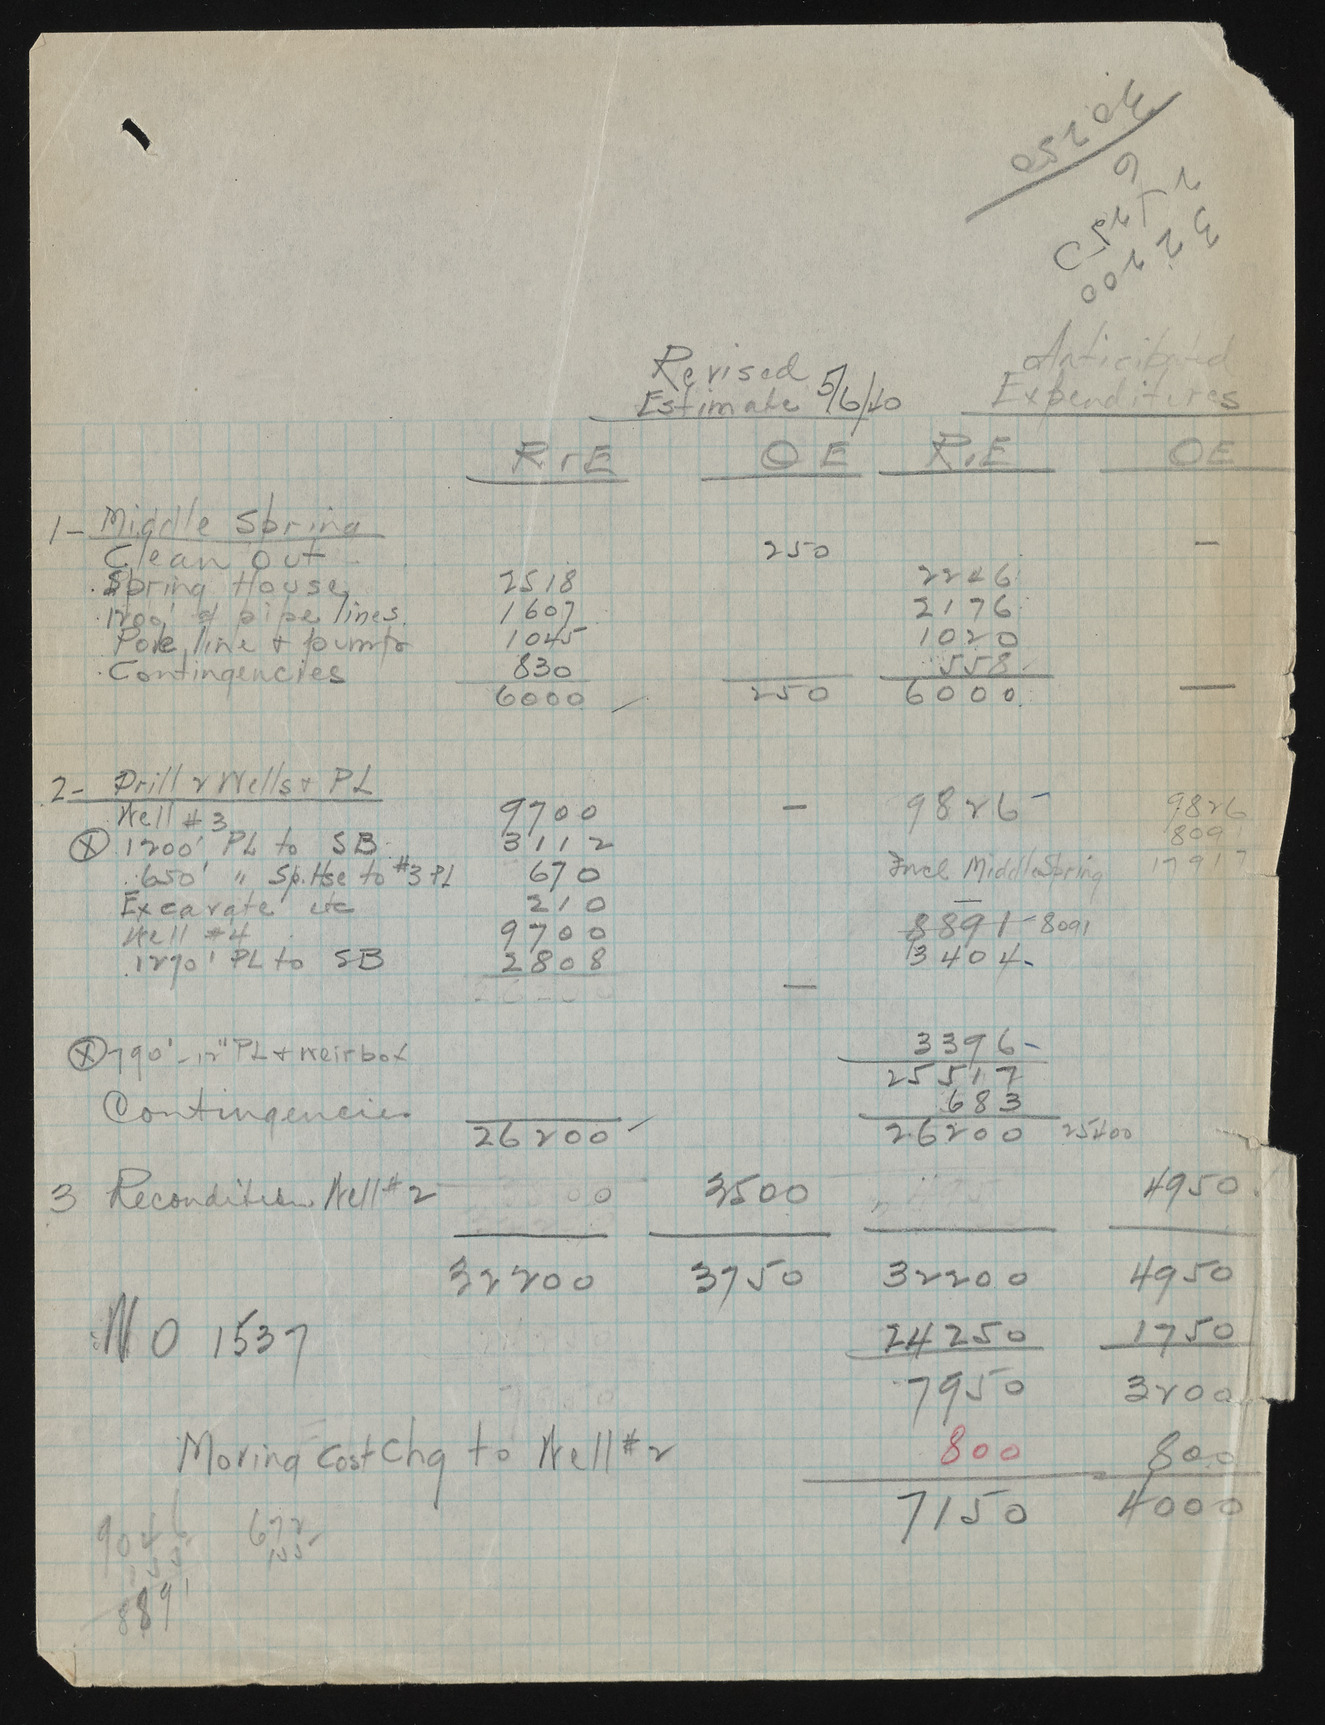 Revised Anticipated
Estimate 5/6/40 Expenditures
R+E OE R+E OE
1- Middle Spring
Clean Out 250 —
Spring House 2518 2246
1200' of pipe lines 1607 2176
Pole line + pump 1045 1020
Contingencies 830 558
6000 250 6000 —
2- Drill 2 Wells + PL
Well #3 9700 — 9826 9826
8091
(X) 1200' PL to SB 3112
650' " Sp. Hse to #3 PL 670 Incl Middle Spring 17917
Excavate etc 210 —
Well #4 9700 8891 8091
1270' PL to SB 2808 3404
—
(X) 790'-12" PL + weirbox 3396
25517
Contingencies 683
26200 26200 25400
3 Recondition Well #2 3500 4950
32200 3750 32200 4950
WO 1537 24250 1750
7950 3200
Moving Cost Chg to Well #2 800 800
7150 4000
9046 672
155 155
8891